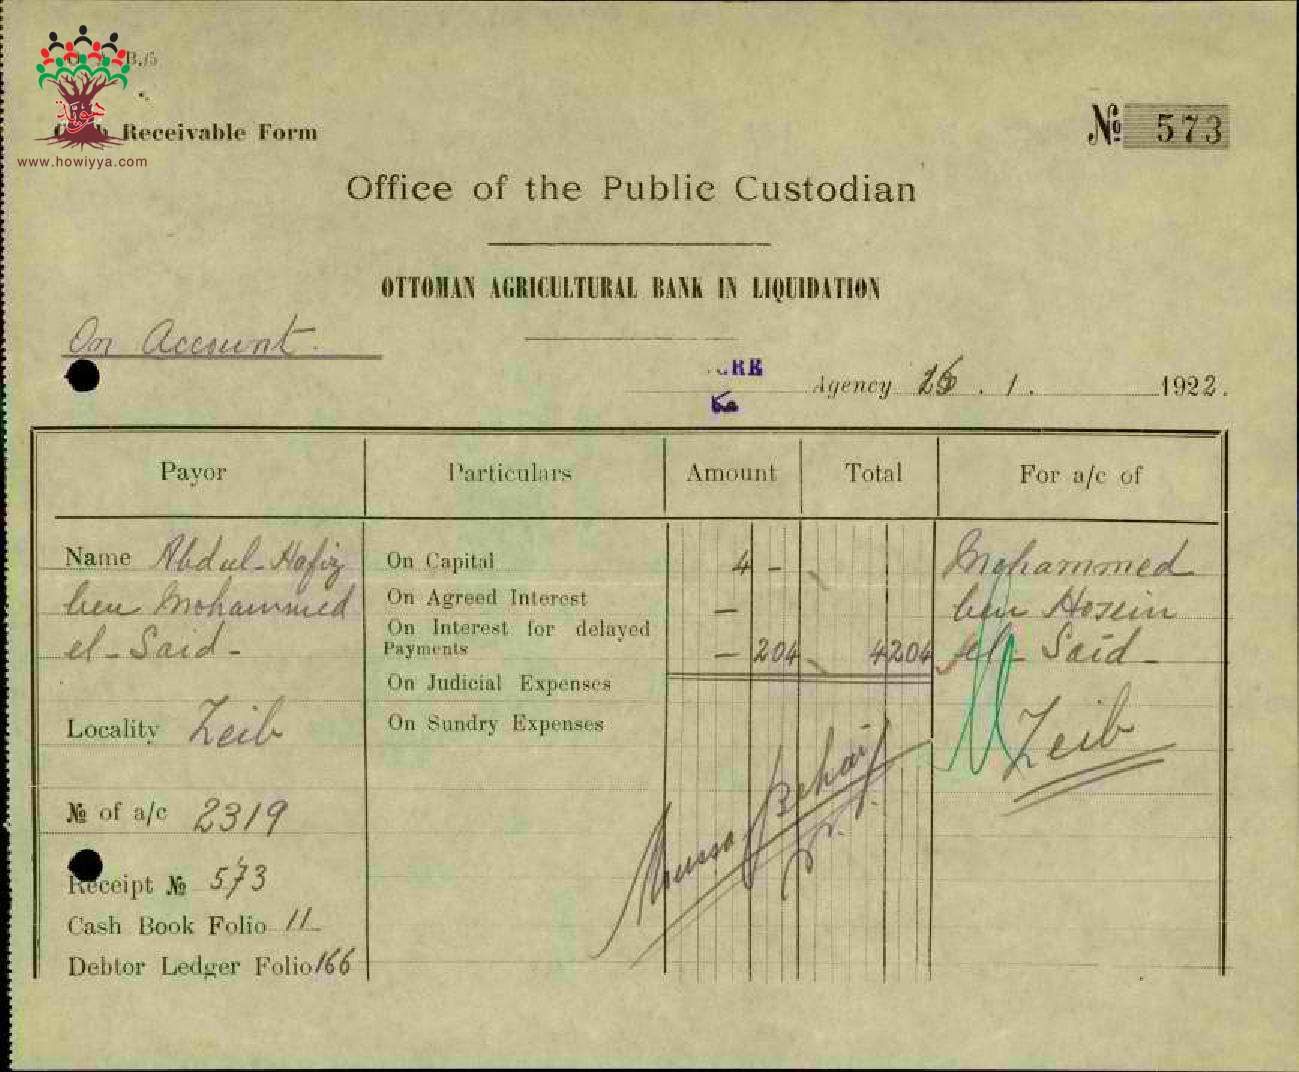 B./5
هوية
www.howiyya.com
Receivable Form
№ 573
Office of the Public Custodian
OTTOMAN AGRICULTURAL BANK IN LIQUIDATION
On Account.
CRE
عكا
Agency . 1 . 1922.
Payor Particulars Amount Total For a/c of
Name Abdul-Hafiz On Capital 4 - Mohammed
ben Mohammed On Agreed Interest — ben Hosein
el-Said- On Interest for delayed Payments — 204 4204 el-Said-
On Judicial Expenses
Locality Zeib On Sundry Expenses Zeib
№ of a/c 2319
Receipt № 573
Cash Book Folio 11
Debtor Ledger Folio 166